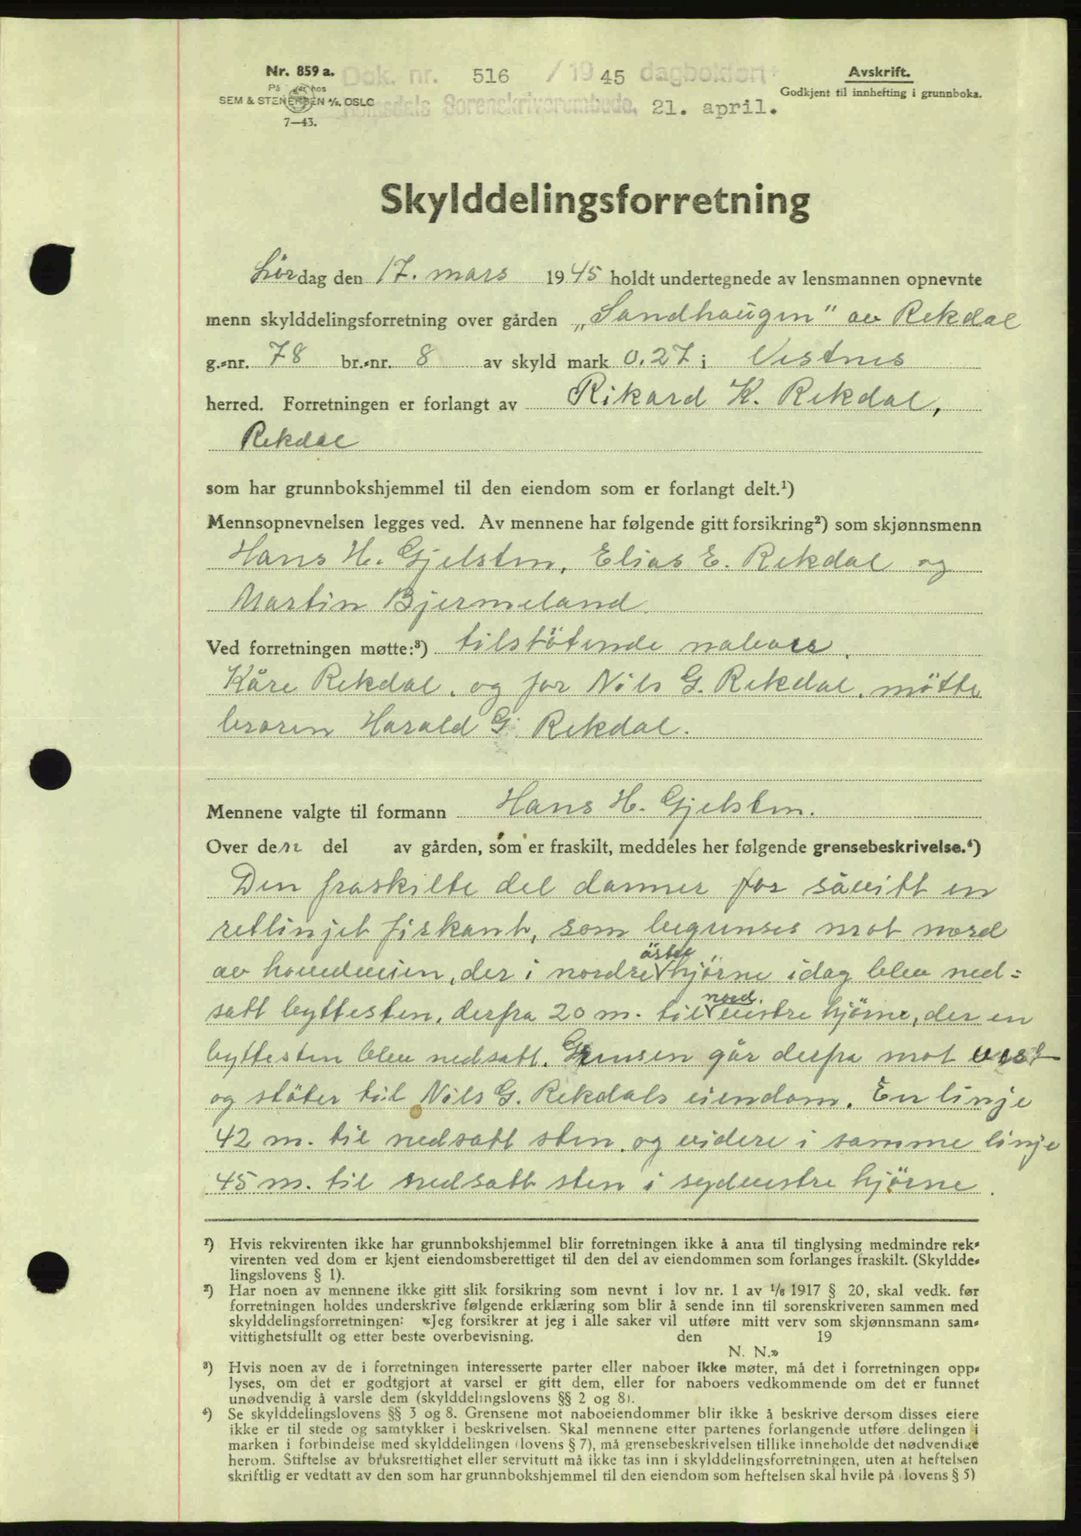 Nr. 859 a.
Dok. nr. 516 / 19 45 dagbokført
Avskrift.
På hos
SEM & STENERSEN A/S, OSLO
Godkjent til innhefting i grunnboka.
Romsdals Sorenskriverembede, 21. april.
7—43.
Skylddelingsforretning
Lördag den 17. mars 1945 holdt undertegnede av lensmannen opnevnte
menn skylddelingsforretning over gården „Sandhaugen" av Rekdal
g.-nr. 78 br.-nr. 8 av skyld mark 0.27 i Vestnes
herred. Forretningen er forlangt av Rikard K. Rekdal,
Rekdal
som har grunnbokshjemmel til den eiendom som er forlangt delt.¹)
Mennsopnevnelsen legges ved. Av mennene har følgende gitt forsikring²) som skjønnsmenn
Hans H. Gjelsten, Elias E. Rekdal og
Martin Bjermeland.
Ved forretningen møtte:³) tilstötende naboer.
Kåre Rekdal, og for Nils G. Rekdal, mötte
broren Harald G. Rekdal.
Mennene valgte til formann Hans H. Gjelsten.
Over den del av gården, som er fraskilt, meddeles her følgende grensebeskrivelse.⁴)
Den fraskilte del danner for såvitt en
retlinjet firkant, som begrenses mot nord
av hovedveien, der i nordre östre hjörne idag blev ned-
satt byttesten, derfra 20 m. til nord vestre hjörne, der en
byttesten blev nedsatt. Grensen går derfra mot vest
og stöter til Nils G. Rekdals eiendom. En linje
42 m. til nedsatt sten, og videre i samme linje
45 m. til nedsatt sten i sydvestre hjörne.
¹) Hvis rekvirenten ikke har grunnbokshjemmel blir forretningen ikke å anta til tinglysing medmindre rek-
virenten ved dom er kjent eiendomsberettiget til den del av eiendommen som forlanges fraskilt. (Skyldde-
lingslovens § 1).
²) Har noen av mennene ikke gitt slik forsikring som nevnt i lov nr. 1 av 1/6 1917 § 20, skal vedk. før
forretningen holdes underskrive følgende erklæring som blir å sende inn til sorenskriveren sammen med
skylddelingsforretningen: «Jeg forsikrer at jeg i alle saker vil utføre mitt verv som skjønnsmann sam-
vittighetsfullt og etter beste overbevisning. den 19
N. N.»
³) Hvis noen av de i forretningen interesserte parter eller naboer ikke møter, må det i forretningen opp-
lyses, om det er godtgjort at varsel er gitt dem, eller for naboers vedkommende om det er funnet
unødvendig å varsle dem (skylddelingslovens §§ 2 og 8).
⁴) Se skylddelingslovens §§ 3 og 8. Grensene mot naboeiendommer blir ikke å beskrive dersom disses eiere
ikke er til stede og samtykker i beskrivelsen. Skal mennene etter partenes forlangende utføre delingen i
marken i forbindelse med skylddelingen (lovens § 7), må grensebeskrivelsen tillike inneholde det nødvendige
herom. Stiftelse av bruksrettighet eller servitutt må ikke tas inn i skylddelingsforretningen, uten at heftelsen
skriftlig er vedtatt av den som har grunnbokshjemmel til den eiendom som heftelsen skal hvile på (lovens § 5)